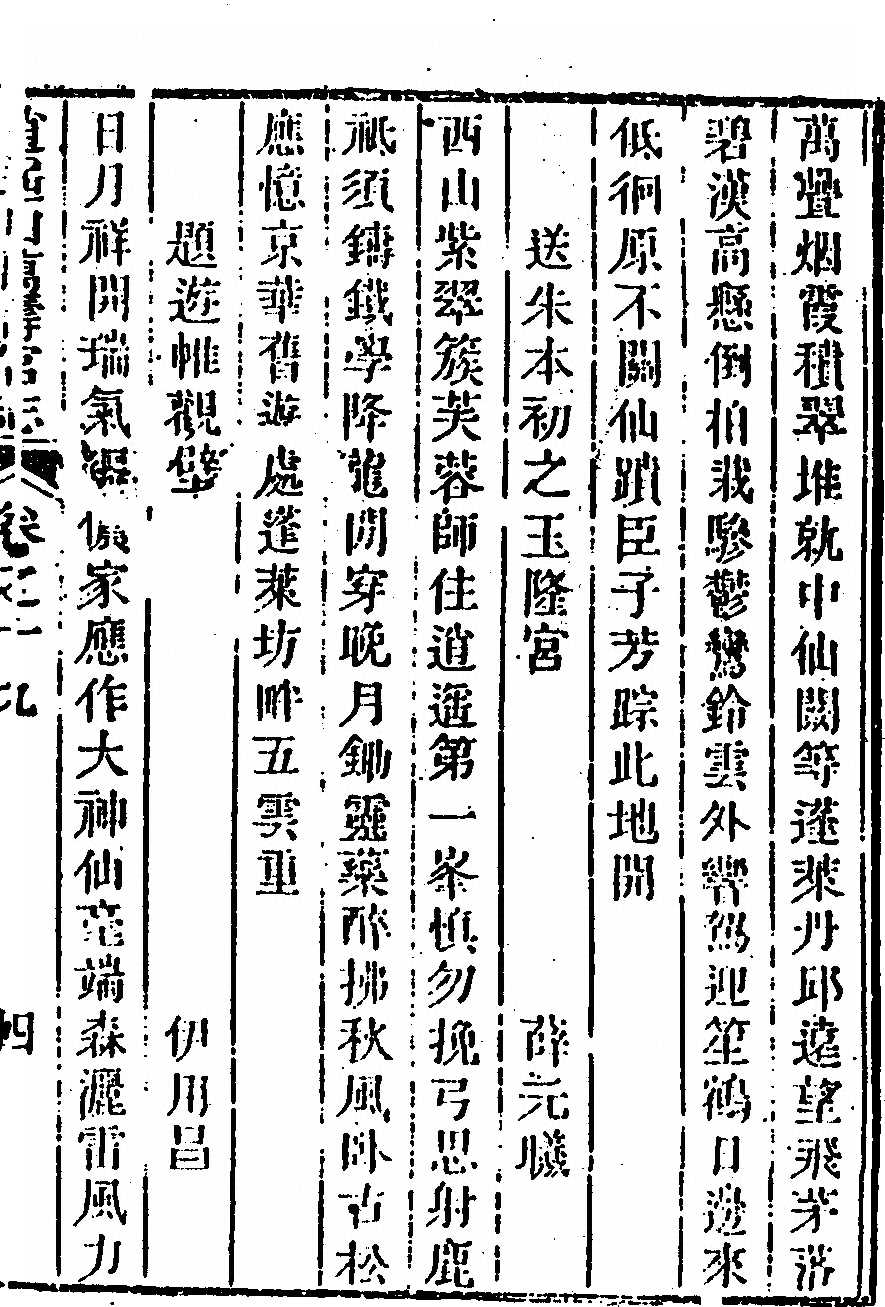 萬疊烟霞積翠堆就中仙闕等蓬萊丹邱遠望飛茅落
碧漢高懸倒柏栽驂鬱鸞鈴雲外響駕迎笙鶴日邊來
低徊原不關仙蹟臣子芳踪此地開
送朱本初之玉隆宮 薛元曦
西山紫翠簇芙蓉師住逍遥第一峯慎勿挽弓思射鹿
祇須鑄鐵學降龍閒穿晚月鋤靈藥醉拂秋風卧古松
應憶京華舊遊處蓬萊坊畔五雲重
題遊帷觀壁 伊用昌
日月祥開瑞氣 家應作大神仙毫端森灑雷風力
逍遙山萬壽宮志 卷之十九 四